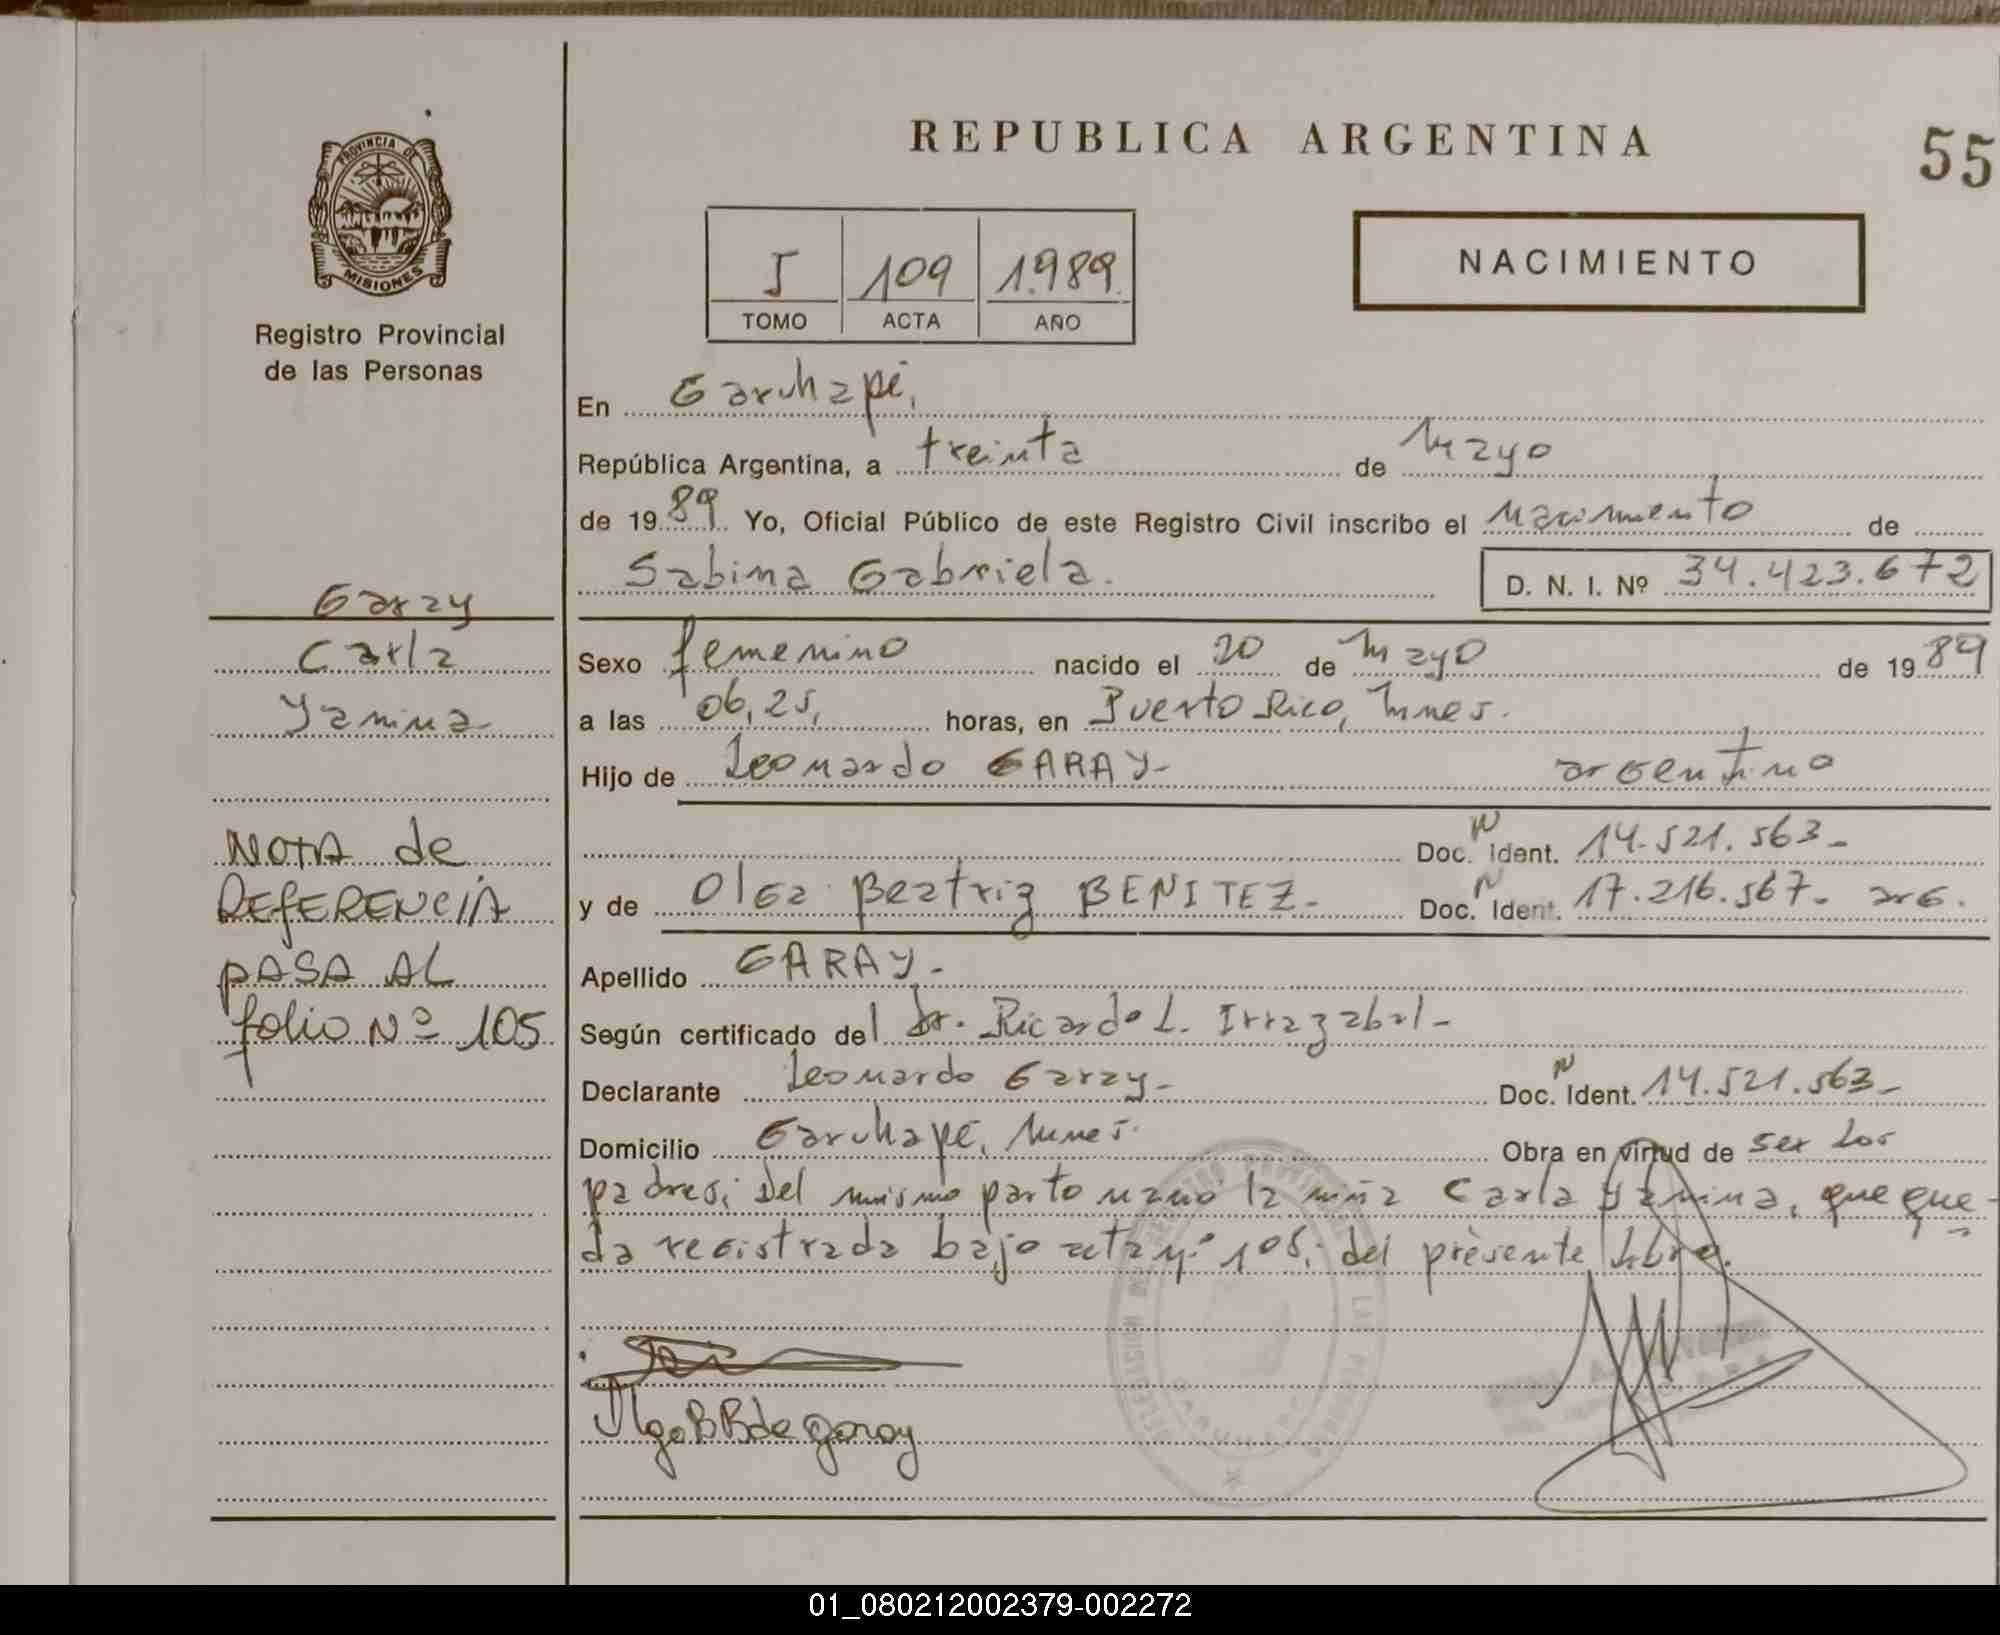 PROVINCIA DE
MISIONES
Registro Provincial
de las Personas
REPUBLICA ARGENTINA
55
I 109 1.989.
TOMO ACTA AÑO
NACIMIENTO
En Garuhapé,
República Argentina, a treinta de Mayo
de 1989. Yo, Oficial Público de este Registro Civil inscribo el nacimiento de
Sabina Gabriela. D. N. I. Nº 34.423.672
Sexo femenino nacido el 20 de Mayo de 1989
a las 06,25, horas, en Puerto Rico, Mnes.
Hijo de Leonardo GARAY- argentino
Doc. N Ident. 14.521.563-
y de Olga Beatriz BENITEZ- Doc. N Ident. 17.216.567- arg.
Apellido GARAY-
Según certificado del Dr. Ricardo L. Irrazabal-
Declarante Leonardo Garay- Doc. N Ident. 14.521.563-
Domicilio Garuhapé, Mnes. Obra en virtud de ser los
padres; Del mismo parto nació la niña Carla Yanina, que que-
da registrada bajo acta nº 108, del presente libro.
Olga B B de garay
Garay
Carla
Yanina
NOTA de
REFERENCIA
PASA AL
folio Nº 105
01_080212002379-002272